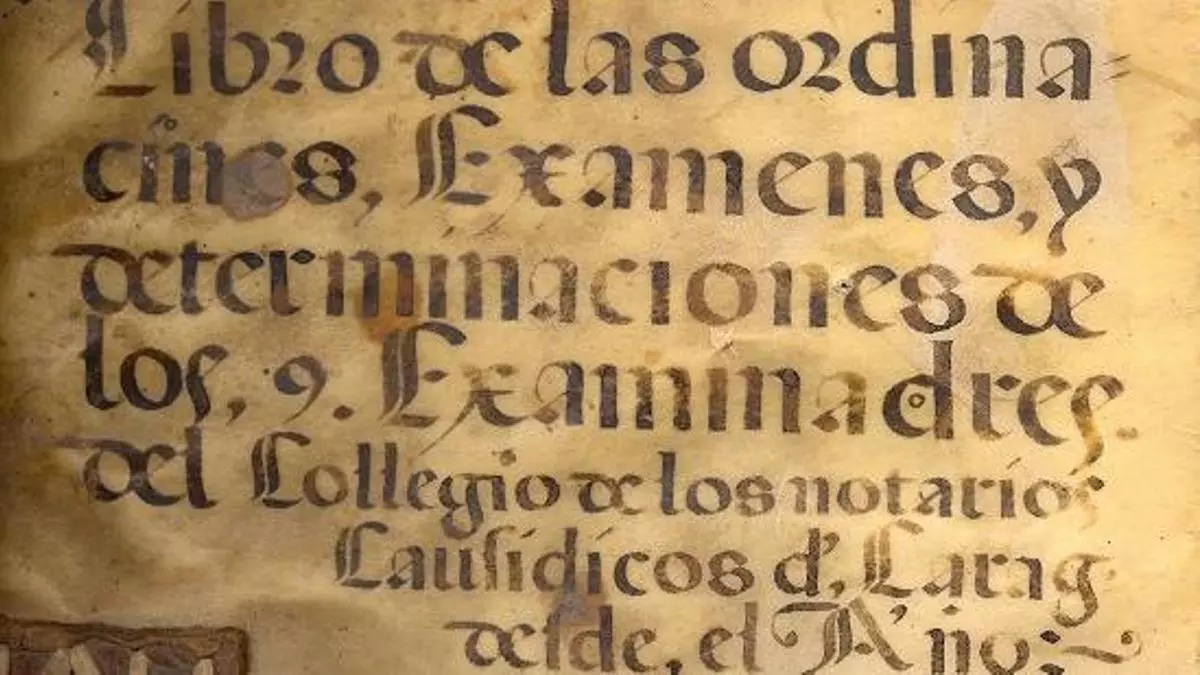 Libro de las ordina=
ciones, Examenes, y
determinaciones de
los, 9. Examinadores.
del Collegio de los notarios
Causidicos d', Çarag.
desde, el Año:~